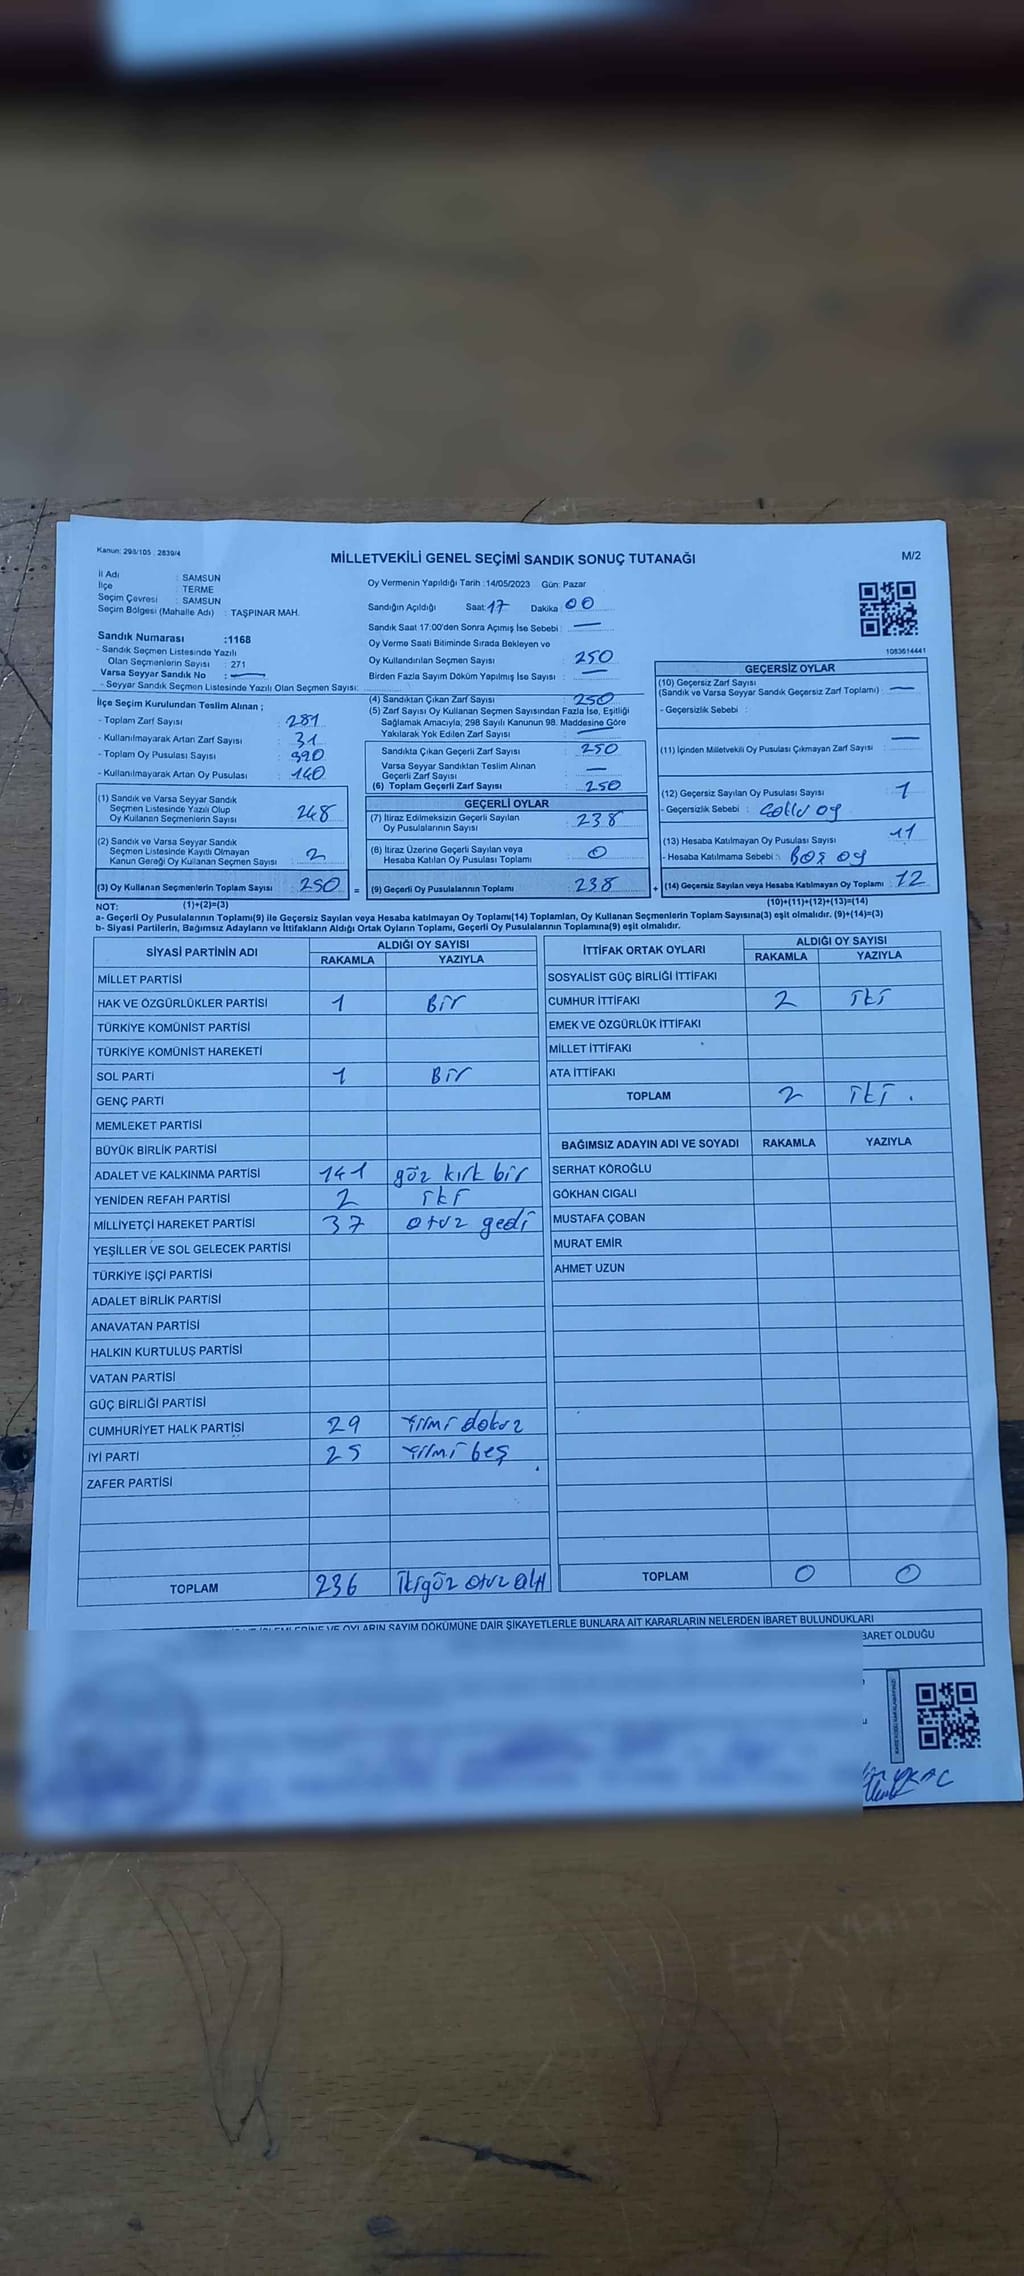 Kanun: 298/105 : 2839/4
MİLLETVEKİLİ GENEL SEÇİMİ SANDIK SONUÇ TUTANAĞI
M/2
İl Adı : SAMSUN
İlçe : TERME
Seçim Çevresi : SAMSUN
Seçim Bölgesi (Mahalle Adı) : TAŞPINAR MAH.
Sandık Numarası :1168
- Sandık Seçmen Listesinde Yazılı
Olan Seçmenlerin Sayısı : 271
Varsa Seyyar Sandık No : —
- Seyyar Sandık Seçmen Listesinde Yazılı Olan Seçmen Sayısı:
Oy Vermenin Yapıldığı Tarih :14/05/2023 Gün: Pazar
Sandığın Açıldığı Saat: 17 Dakika 00
Sandık Saat 17:00'den Sonra Açımış İse Sebebi : —
Oy Verme Saati Bitiminde Sırada Bekleyen ve
Oy Kullandırılan Seçmen Sayısı : 250
Birden Fazla Sayım Döküm Yapılmış İse Sayısı : —
1083614441
İlçe Seçim Kurulundan Teslim Alınan ;
- Toplam Zarf Sayısı : 281
- Kullanılmayarak Artan Zarf Sayısı : 31
- Toplam Oy Pusulası Sayısı : 390
- Kullanılmayarak Artan Oy Pusulası : 140
(1) Sandık ve Varsa Seyyar Sandık
Seçmen Listesinde Yazılı Olup
Oy Kullanan Seçmenlerin Sayısı : 248
(2) Sandık ve Varsa Seyyar Sandık
Seçmen Listesinde Kayıtlı Olmayan
Kanun Gereği Oy Kullanan Seçmen Sayısı : 2
(3) Oy Kullanan Seçmenlerin Toplam Sayısı : 250 =
(4) Sandıktan Çıkan Zarf Sayısı : 250
(5) Zarf Sayısı Oy Kullanan Seçmen Sayısından Fazla İse, Eşitliği
Sağlamak Amacıyla; 298 Sayılı Kanunun 98. Maddesine Göre
Yakılarak Yok Edilen Zarf Sayısı : —
Sandıkta Çıkan Geçerli Zarf Sayısı : 250
Varsa Seyyar Sandıktan Teslim Alınan
Geçerli Zarf Sayısı : —
(6) Toplam Geçerli Zarf Sayısı : 250
GEÇERLİ OYLAR
(7) İtiraz Edilmeksizin Geçerli Sayılan
Oy Pusulalarının Sayısı : 238
(8) İtiraz Üzerine Geçerli Sayılan veya
Hesaba Katılan Oy Pusulası Toplamı : 0
(9) Geçerli Oy Pusulalarının Toplamı : 238 +
GEÇERSİZ OYLAR
(10) Geçersiz Zarf Sayısı
(Sandık ve Varsa Seyyar Sandık Geçersiz Zarf Toplamı) : —
- Geçersizlik Sebebi :
(11) İçinden Milletvekili Oy Pusulası Çıkmayan Zarf Sayısı : —
(12) Geçersiz Sayılan Oy Pusulası Sayısı : 1
- Geçersizlik Sebebi : oy
(13) Hesaba Katılmayan Oy Pusulası Sayısı : 11
- Hesaba Katılmama Sebebi : Boş oy
(14) Geçersiz Sayılan veya Hesaba Katılmayan Oy Toplamı : 12
NOT: (1)+(2)=(3)
(10)+(11)+(12)+(13)=(14)
a- Geçerli Oy Pusulalarının Toplamı(9) ile Geçersiz Sayılan veya Hesaba katılmayan Oy Toplamı(14) Toplamları, Oy Kullanan Seçmenlerin Toplam Sayısına(3) eşit olmalıdır. (9)+(14)=(3)
b- Siyasi Partilerin, Bağımsız Adayların ve İttifakların Aldığı Ortak Oyların Toplamı, Geçerli Oy Pusulalarının Toplamına(9) eşit olmalıdır.
SİYASİ PARTİNİN ADI ALDIĞI OY SAYISI
RAKAMLA YAZIYLA
MİLLET PARTİSİ
HAK VE ÖZGÜRLÜKLER PARTİSİ 1 Bir
TÜRKİYE KOMÜNİST PARTİSİ
TÜRKİYE KOMÜNİST HAREKETİ
SOL PARTİ 1 Bir
GENÇ PARTİ
MEMLEKET PARTİSİ
BÜYÜK BİRLİK PARTİSİ
ADALET VE KALKINMA PARTİSİ 141 yüz kırk bir
YENİDEN REFAH PARTİSİ 2 İki
MİLLİYETÇİ HAREKET PARTİSİ 37 otuz yedi
YEŞİLLER VE SOL GELECEK PARTİSİ
TÜRKİYE İŞÇİ PARTİSİ
ADALET BİRLİK PARTİSİ
ANAVATAN PARTİSİ
HALKIN KURTULUŞ PARTİSİ
VATAN PARTİSİ
GÜÇ BİRLİĞİ PARTİSİ
CUMHURİYET HALK PARTİSİ 29 Yirmi dokuz
İYİ PARTİ 25 Yirmi beş
ZAFER PARTİSİ
TOPLAM 236 İkiyüz otuz altı
İTTİFAK ORTAK OYLARI ALDIĞI OY SAYISI
RAKAMLA YAZIYLA
SOSYALİST GÜÇ BİRLİĞİ İTTİFAKI
CUMHUR İTTİFAKI 2 İki
EMEK VE ÖZGÜRLÜK İTTİFAKI
MİLLET İTTİFAKI
ATA İTTİFAKI
TOPLAM 2 İki .
BAĞIMSIZ ADAYIN ADI VE SOYADI RAKAMLA YAZIYLA
SERHAT KÖROĞLU
GÖKHAN CIGALI
MUSTAFA ÇOBAN
MURAT EMİR
AHMET UZUN
TOPLAM 0 0
VE OYLARIN SAYIM DÖKÜMÜNE DAİR ŞİKAYETLERLE BUNLARA AİT KARARLARIN NELERDEN İBARET BULUNDUKLARI
BARET OLDUĞU